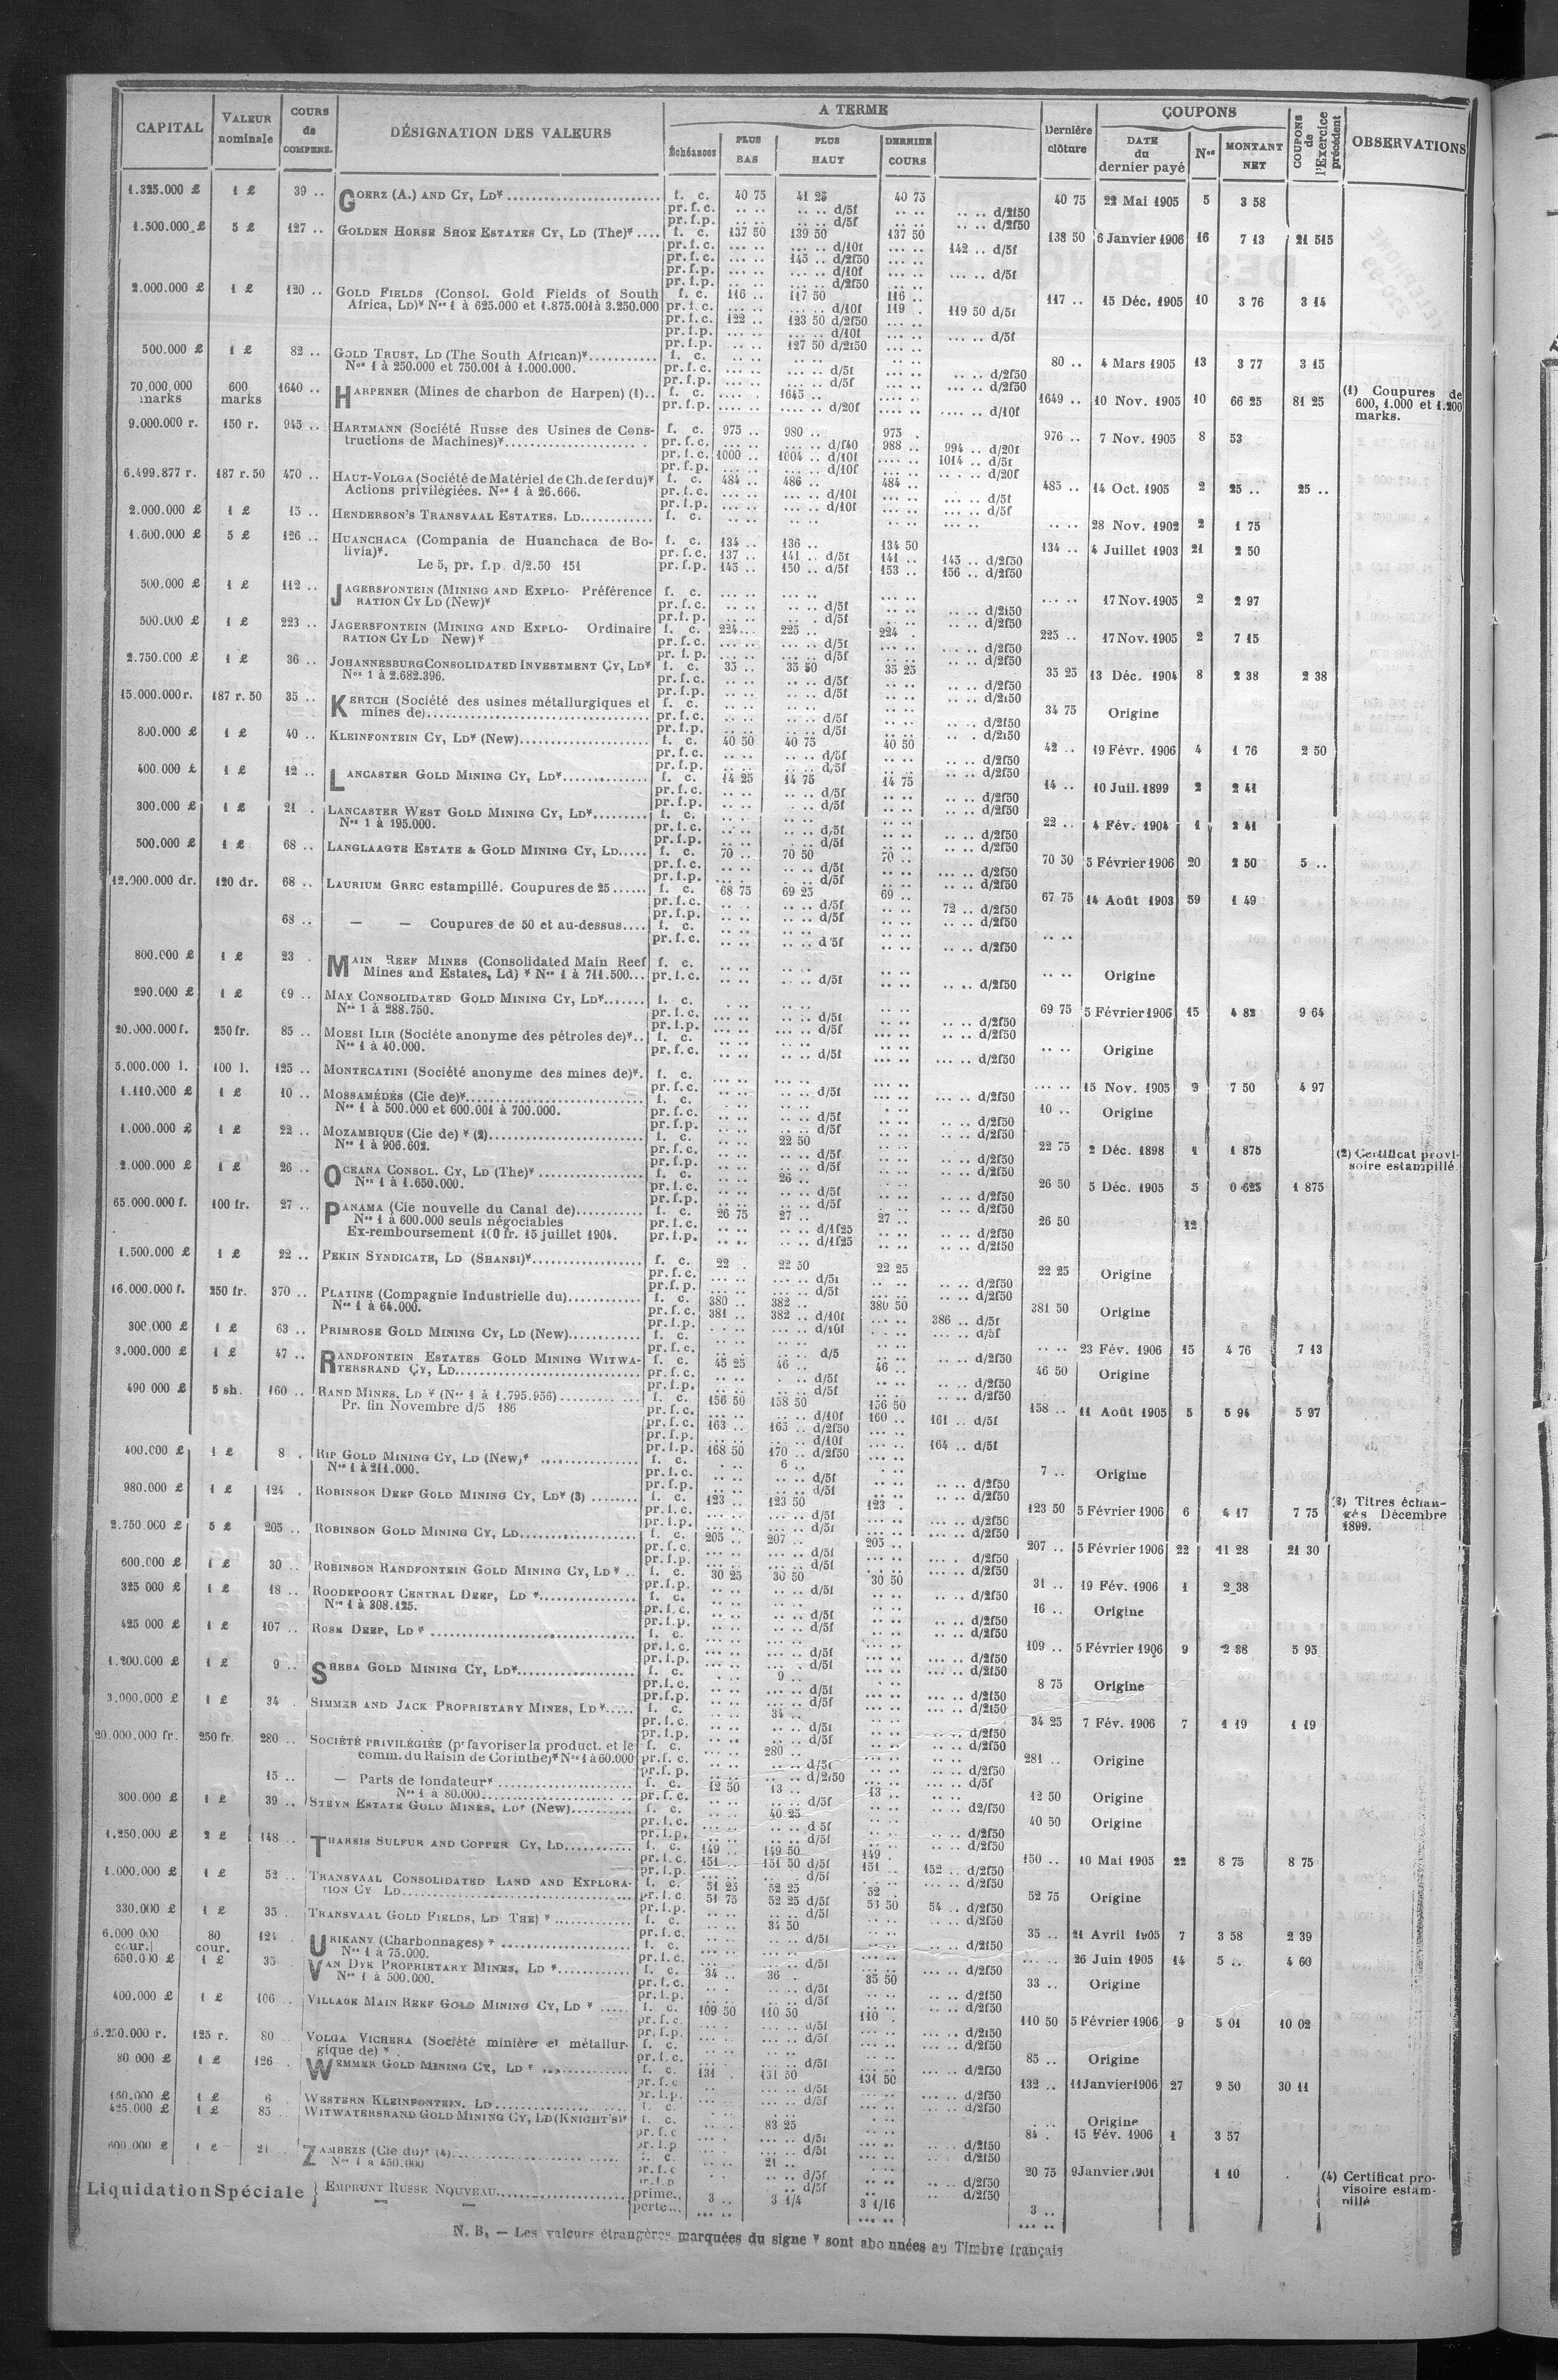 CAPITAL VALEUR nominale COURS de COMPENS. DÉSIGNATION DES VALEURS A TERME Échéances PLUS BAS PLUS HAUT DERNIER COURS Dernière clôture COUPONS DATE du dernier payé Nos MONTANT NET COUPONS de l'Exercice précédent OBSERVATIONS
1.325.000 £ 1 £ 39 .. GOERZ (A.) AND CY, LD* f. c. 40 75 41 25 40 75 40 75 22 Mai 1905 5 3 58
pr. f. c. .. .. .. .. d/5f .. .. .. .. d/2f50
pr. f. p. .. .. .. .. d/5f .. .. .. .. d/2f50
1.500.000 £ 5 £ 127 .. GOLDEN HORSE SHOE ESTATES CY, LD (The)* .... f. c. 137 50 139 50 137 50 138 50 6 Janvier 1906 16 7 13 21 515
pr. f. c. .... .. .... .. d/10f .... .. 142 .. d/5f
pr. f. c. .... .. 145 .. d/2f50 .... ..
pr. f. p. .... .. .... .. d/10f .... .. .... .. d/5f
pr. f. p. .... .. .... .. d/2f50 .... ..
2.000.000 £ 1 £ 120 .. GOLD FIELDS (Consol. Gold Fields of South f. c. 116 .. 117 50 116 .. 117 .. 15 Déc. 1905 10 3 76 3 14
Africa, LD)* Nos 1 à 625.000 et 1.875.001 à 3.250.000 pr. f. c. .... .. .... .. d/10f 119 . 119 50 d/5f
pr. f. c. 122 .. 123 50 d/2f50 .... ..
pr. f. p. .... .. .... .. d/10f .... .. .... .. d/5f
pr. f. p. .... .. 127 50 d/2f50 .... ..
500.000 £ 1 £ 82 .. GOLD TRUST, LD (The South African)* f. c. .. .. .. .. .. .. 80 .. 4 Mars 1905 13 3 77 3 15
Nos 1 à 250.000 et 750.001 à 1.000.000. pr. f. c. .... .. .... .. d/5f .. .. .. .. d/2f50
pr. f. p. .... .. .... .. d/5f .. .. .... .. d/2f50
70.000.000 marks 600 marks 1640 .. HARPENER (Mines de charbon de Harpen) (1).. f. c. .... .. 1645 .. .... .. 1649 .. 10 Nov. 1905 10 66 25 81 25 (1) Coupures de 600, 1.000 et 1.200 marks.
pr. f. p. .... .. .... .. d/20f .... .. .... .. d/10f
9.000.000 r. 150 r. 945 .. HARTMANN (Société Russe des Usines de Cons- f. c. 975 .. 980 .. 975 . 976 .. 7 Nov. 1905 8 53
tructions de Machines)* pr. f. c. .... .. .... .. d/f40 988 .. 994 .. d/20f
pr. f. c. 1000 .. 1004 .. d/10f .... .. 1014 .. d/5f
pr. f. p. .... .. .... .. d/10f .... .. .... .. d/20f
6.499.877 r. 187 r. 50 470 .. HAUT-VOLGA (Société de Matériel de Ch. de fer du)* f. c. 484 .. 486 .. 484 .. 485 .. 14 Oct. 1905 2 25 .. 25 ..
Actions privilégiées. Nos 1 à 26.666. pr. f. c. .... .. .... .. d/10f .... .. .... .. d/5f
pr. f. p. .... .. .... .. d/10f .... .. .... .. d/5f
2.000.000 £ 1 £ 15 .. HENDERSON'S TRANSVAAL ESTATES, LD f. c. .. .. .. .. .. .. .. .. 28 Nov. 1902 2 1 75
1.600.000 £ 5 £ 126 .. HUANCHACA (Compania de Huanchaca de Bo- f. c. 134 .. 136 .. 134 50 134 .. 4 Juillet 1903 21 2 50
livia)*. pr. f. c. 137 .. 141 .. d/5f 141 .. 145 .. d/2f50
Le 5, pr. f.p. d/2.50 151 pr. f. p. 145 .. 150 .. d/5f 153 .. 156 .. d/2f50
500.000 £ 1 £ 112 .. JAGERSFONTEIN (MINING AND EXPLO- Préférence f. c. .... .. .... .. .... .. .... .. 17 Nov. 1905 2 2 97
RATION CY LD (New)* pr. f. c. .... .. .... .. d/5f .. .. .. .. d/2f50
pr. f. p. .. .. .. . d/5f .. .. .. .. d/2f50
500.000 £ 1 £ 223 .. JAGERSFONTEIN (MINING AND EXPLO- Ordinaire f. c. 224 .. 225 .. 224 . 225 .. 17 Nov. 1905 2 7 15
RATION CY LD New)* pr. f. c. .... .. .... .. d/5f .... .. .. .. d/2f50
pr. f. p. .... .. .... .. d/5f .. .. .. .. d/2f50
2.750.000 £ 1 £ 36 .. JOHANNESBURG CONSOLIDATED INVESTMENT CY, LD* f. c. 35 .. 35 50 35 25 35 25 13 Déc. 1904 8 2 38 2 38
Nos 1 à 2.682.396. pr. f. c. .. .. .. .. d/5f .. .. .. .. d/2f50
pr. f. p. .. .. .. .. d/5f .. .. .. .. d/2f50
15.000.000 r. 187 r. 50 35 .. KERTCH (Société des usines métallurgiques et f. c. .. .. .. .. .. .. 34 75 Origine
mines de) pr. f. c. .. .. .. .. d/5f .. .. .. .. d/2f50
pr. f. p. .. .. .. .. d/5f .. .. .. . d/2f50
800.000 £ 1 £ 40 .. KLEINFONTEIN CY, LD* (New) f. c. 40 50 40 75 40 50 42 .. 19 Févr. 1906 4 1 76 2 50
pr. f. c. .. .. .. .. d/5f .. .. .. .. d/2f50
pr. f. p. .. .. .. .. d/5f .. .. .. .. d/2f50
400.000 £ 1 £ 12 .. LANCASTER GOLD MINING CY, LD* f. c. 14 25 14 75 14 75 14 .. 10 Juil. 1899 2 2 41
pr. f. c. .. .. .. .. d/5f .. .. .. .. d/2f50
pr. f. p. .. .. .. .. d/5f .. .. .. .. d/2f50
300.000 £ 1 £ 21 . LANCASTER WEST GOLD MINING CY, LD* f. c. .. .. .. .. .. .. 22 .. 4 Fév. 1904 1 2 41
Nos 1 à 195.000. pr. f. c. .. .. .. .. d/5f .. .. .. .. d/2f50
pr. f. p. .. .. .. .. d/5f .. .. .. .. d/2f50
500.000 £ 1 £ 68 .. LANGLAAGTE ESTATE & GOLD MINING CY, LD f. c. 70 .. 70 50 70 .. 70 50 5 Février 1906 20 2 50 5 ..
pr. f. c. .. .. .. .. d/5f .. .. .... .. d/2f50
pr. f. p. .... . .. .. d/5f .. .. .. .. d/2f50
12.000.000 dr. 120 dr. 68 .. LAURIUM GREC estampillé. Coupures de 25 f. c. 68 75 69 25 69 .. 67 75 14 Août 1903 59 1 49
pr. f. c. .. .. .. .. d/5f .. .. 72 .. d/2f50
pr. f. p. .. .. .. .. d/5f .. ..
68 .. — — Coupures de 50 et au-dessus.... f. c. .. .. .. .. .. .. .. ..
pr. f. c. .. .. .. .. d 5f .. .. d/2f50
800.000 £ 1 £ 23 . MAIN REEF MINES (Consolidated Main Reef f. c. .. .. .. .. .. .. .. .. Origine
Mines and Estates, Ld) * Nos 1 à 711.500 pr. f. c. .. .. .. .. d/5f .. .. .. .. d/2f50
290.000 £ 1 £ 69 .. MAY CONSOLIDATED GOLD MINING CY, LD* f. c. .. .. .. .. .. .. 69 75 5 Février 1906 15 4 82 9 64
Nos 1 à 288.750. pr. f. c. .. .. .. .. d/5f .. .. .. .. d/2f50
pr. f. p. .. .. .. .. d/5f .. .. .. .. d/2f50
20.000.000 f. 250 fr. 85 .. MOESI ILIR (Sociéte anonyme des pétroles de)*.. f. c. .. .. .. .. .... .. .. .. Origine
Nos 1 à 40.000. pr. f. c. .. .. .. .. d/5f .... .. .... .. d/2f50
5.000.000 l. 100 l. 125 .. MONTECATINI (Société anonyme des mines de)*. f. c. .... .. .... .. .... .. .... .. 15 Nov. 1905 9 7 50 4 97
pr. f. c. .... .. .. .. d/5f .. .. .... .. d/2f50
1.110.000 £ 1 £ 10 .. MOSSAMÉDÈS (Cie de)* f. c. .. .. .. .. .. .. 10 .. Origine
Nos 1 à 500.000 et 600.001 à 700.000. pr. f. c. .. .. .. .. d/5f .. .. .. .. d/2f50
pr. f. p. .. .. .. .. d/5f .. .. .. .. d/2f50
1.000.000 £ 1 £ 22 .. MOZAMBIQUE (Cie de) * (2) f. c. .. .. 22 50 .. .. 22 75 2 Déc. 1898 1 1 875 (2) Certificat provi-
Nos 1 à 906.602. pr. f. c. .. .. .. .. d/5f .. .. .. .. d/2f50 soire estampillé
pr. f. p. .. .. .. .. d/5f .. .. .. .. d/2f50
2.000.000 £ 1 £ 26 .. OCEANA CONSOL. CY, LD (The)* f. c. .. .. 26 .. .. .. 26 50 5 Déc. 1905 5 0 625 1 875
Nos 1 à 1.650.000. pr. f. c. .. .. .. .. d/5f .. .. .. .. d/2f50
pr. f. p. .. .. .. .. d/5f .. .. .. .. d/2f50
65.000.000 f. 100 fr. 27 .. PANAMA (Cie nouvelle du Canal de) f. c. 26 75 27 .. 27 .. 26 50 12
Nos 1 à 600.000 seuls négociables pr. f. c. .. .. .. .. d/1f25 .. .. .. .. d/2f50
Ex-remboursement 100 fr. 15 juillet 1904. pr. f. p. .. .. .. .. d/1f25 .. .. .. .. d/2f50
1.500.000 £ 1 £ 22 .. PEKIN SYNDICATE, LD (SHANSI)* f. c. 22 . 22 50 22 25 22 25 Origine
pr. f. c. .... .. .... .. d/5f .. .. .. .. d/2f50
pr. f. p. .... .. .... .. d/5f .. .. .. .. d/2f50
16.000.000 f. 250 fr. 370 .. PLATINE (Compagnie Industrielle du) f. c. 380 .. 382 .. 380 50 381 50 Origine
Nos 1 à 64.000. pr. f. c. 381 .. 382 .. d/10f .... .. 386 .. d/5f
pr. f. p. .. .. .. .. d/10f .... .. .... .. d/5f
300.000 £ 1 £ 63 .. PRIMROSE GOLD MINING CY, LD (New) f. c. .. .. .. .. .. .. .. .. 23 Fév. 1906 15 4 76 7 13
pr. f. c. .. .. .. .. d/5 .. .. .. .. d/2f50
3.000.000 £ 1 £ 47 .. RANDFONTEIN ESTATES GOLD MINING WITWA- f. c. 45 25 46 .. 46 .. 46 50 Origine
TERSRAND CY, LD pr. f. c. .. .. .. .. d/5f .. .. .. .. d/2f50
pr. f. p. .. .. .. .. d/5f .. .. .. .. d/2f50
490 000 £ 5 sh. 160 .. RAND MINES, LD * (Nos 1 à 1.795.956) f. c. 156 50 158 50 156 50 158 .. 11 Août 1905 5 5 94 5 97
Pr. fin Novembre d/5 186 pr. f. c. .... .. .... .. d/10f 160 .. 161 .. d/5f
pr. f. c. 163 .. 165 .. d/2f50 .... ..
pr. f. p. .... .. .... .. d/10f .... .. 164 .. d/5f
pr. f. p. 168 50 170 .. d/2f50 .... ..
400.000 £ 1 £ 8 . RIP GOLD MINING CY, LD (New)* f. c. .. .. 6 .. .. .. 7 .. Origine
Nos 1 à 211.000. pr. f. c. .. .. .. .. d/5f .. .. .. .. d/2f50
pr. f. p. .. .. .. .. d/5f .. .. .. .. d/2f50
980.000 £ 1 £ 124 . ROBINSON DEEP GOLD MINING CY, LD* (3) f. c. 123 .. 123 50 123 . 123 50 5 Février 1906 6 4 17 7 75 (3) Titres échan-
pr. f. c. .... .. .... .. d/5f .... .. .... .. d/2f50 gés Décembre
pr. f. p. .... .. .... .. d/5f .... .. .... .. d/2f50 1899.
2.750.000 £ 5 £ 205 .. ROBINSON GOLD MINING CY, LD f. c. 205 .. 207 .. 205 .. 207 .. 5 Février 1906 22 11 28 21 30
pr. f. c. .... .. .... .. d/5f .... .. .... . d/2f50
pr. f. p. .... .. .... .. d/5f .... .. .... .. d/2f50
600.000 £ 1 £ 30 .. ROBINSON RANDFONTEIN GOLD MINING CY, LD * .. f. c. 30 25 30 50 30 50 31 .. 19 Fév. 1906 1 2 38
pr. f. p. .. .. .. .. d/5f .. .. .. .. d/2f50
325 000 £ 1 £ 18 .. ROODEPOORT CENTRAL DEEP, LD * f. c. .. .. .. .. .. .. 16 .. Origine
Nos 1 à 308.125. pr. f. c. .. .. .. .. d/5f .. .. .. .. d/2f50
pr. f. p. .. .. .. .. d/5f .. .. .. .. d/2f50
425 000 £ 1 £ 107 .. ROSE DEEP, LD * f. c. .. .. .. .. .. .. 109 .. 5 Février 1906 9 2 38 5 95
pr. f. c. .... .. .... .. d/5f .... .. .... .. d/2f50
pr. f. p. .... .. .... .. d/5f .... .. .... .. d/2f50
1.200.000 £ 1 £ 9 .. SHEBA GOLD MINING CY, LD* f. c. .. .. 9 .. .. .. 8 75 Origine
pr. f. c. .. .. .. .. d/5f .. .. .... .. d/2f50
pr. f. p. .. .. .. .. d/5f .. .. .... .. d/2f50
3.000.000 £ 1 £ 34 . SIMMER AND JACK PROPRIETARY MINES, LD* f. c. .. .. 34 .. .. .. 34 25 7 Fév. 1906 7 1 19 1 19
pr. f. c. .. .. .. .. d/5f .. .. .. .. d/2f50
pr. f. p. .. .. .. .. d/5f .. .. .. .. d/2f50
20.000.000 fr. 250 fr. 280 .. SOCIÉTÉ PRIVILÉGIÉE (pr favoriser la product. et le f. c. .... .. 280 .. .. .. 281 .. Origine
comm. du Raisin de Corinthe)* Nos 1 à 60.000 pr. f. c. .. .. .. .. d/5f .. .. .. .. d/2f50
pr. f. p. .. .. .. .. d/2f50 .... .. .... .. d/5f
15 .. — Parts de fondateur* f. c. 12 50 13 .. 13 .. 12 50 Origine
Nos 1 à 80.000 pr. f. c. .. .. .. .. d/5f .. .. .. .. d2/f50
300.000 £ 1 £ 39 .. STEYN ESTATE GOLD MINES, LD* (New) f. c. .. .. 40 25 .. .. 40 50 Origine
pr. f. c. .. .. .. .. d 5f .. .. .. .. d/2f50
pr. f. p. .. .. .. .. d/5f .. .. .. .. d/2f50
1.250.000 £ 2 £ 148 .. THARSIS SULFUR AND COPPER CY, LD f. c. 149 .. 149 50 149 . 150 .. 10 Mai 1905 22 8 75 8 75
pr. f. c. 151 .. 151 50 d/5f 151 .. 152 .. d/2f50
pr. f. p. .... .. .... .. d/5f .... .. .... .. d/2f50
1.000.000 £ 1 £ 52 .. TRANSVAAL CONSOLIDATED LAND AND EXPLORA- f. c. 51 25 52 25 52 . 52 75 Origine
TION CY LD pr. f. c. 51 75 52 25 d/5f 53 50 54 .. d/2f50
pr. f. p. .. .. .. .. d/5f .. .. .. .. d/2f50
330.000 £ 1 £ 35 . TRANSVAAL GOLD FIELDS, LD THE) * f. c. .. .. 34 50 .. .. 35 .. 21 Avril 1905 7 3 58 2 39
pr. f. c. .. .. .. .. d/5f .. .. .. .. d/2f50
6.000 000 cour. 80 cour. 124 URIKANY (Charbonnages) * f. c. .... .. .... .. .... .. .... .. 26 Juin 1905 14 5 .. 4 60
Nos 1 à 75.000. pr. f. c. .... .. .... .. d/5f .... .. .... .. d/2f50
650.000 £ 1 £ 35 VAN DYK PROPRIETARY MINES, LD * f. c. 34 .. 36 .. 35 50 33 .. Origine
Nos 1 à 500.000. pr. f. c. .. .. .. .. d/5f .. .. .. .. d/2f50
pr. f. p. .. .. .. .. d/5f .. .. .. .. d/2f50
400.000 £ 1 £ 106 .. VILLAGE MAIN REEF GOLD MINING CY, LD * f. c. 109 50 110 50 110 . 110 50 5 Février 1906 9 5 01 10 02
pr. f. c. .... .. .... .. d/5f .. .. .... .. d/2f50
pr. f. p. .... .. .... .. d/5f .. .. .... .. d/2f50
6.250.000 r. 125 r. 80 . VOLGA VICHERA (Société minière et métallur- f. c. .. .. .. .. .. .. 85 .. Origine
gique de) * . pr. f. c. .... .. .... .. d/5f .... .. .... .. d/2f50
80 000 £ 1 £ 126 . WEMMER GOLD MINING CY, LD * f. c. 131 . 131 50 131 50 132 .. 11 Janvier 1906 27 9 50 30 11
pr. f. c .. .. .... .. d/5f .. .. .... .. d/2f50
pr. f. p. .. .. .... .. d/5f .. .. .... .. d/2f50
160.000 £ 1 £ 6 WESTERN KLEINFONTEIN, LD .. .. Origine
425.000 £ 1 £ 85 . WITWATERSRAND GOLD MINING CY, LD (KNIGHT'S)* f. c. .. .. 83 25 .. .. 84 . 15 Fév. 1906 1 3 57
pr. f. c .. .. .. .. d/5f .. .. .. .. d/2f50
pr. f. p .. .. .. .. d/5f .. .. .. .. d/2f50
600.000 £ 1 £ 21 . ZAMBEZE (Cie du)* (4) f. c. .. .. 21 .. .. .. 20 75 9 Janvier 1901 1 10 (4) Certificat pro-
Nos 1 à 450.000 pr. f. c .. .. .. .. d/5f .. .. .. .. d/2f50 visoire estam-
pr. f. p .. .. .. .. d/5f .. .. .. .. d/2f50 pillé
Liquidation Spéciale } EMPRUNT RUSSE NOUVEAU prime.. 3 .. 3 1/4 3 1/16 3 ..
— — perte... .... .. .... .. .... ..
N. B. — Les valeurs étrangères marquées du signe * sont abonnées au Timbre français